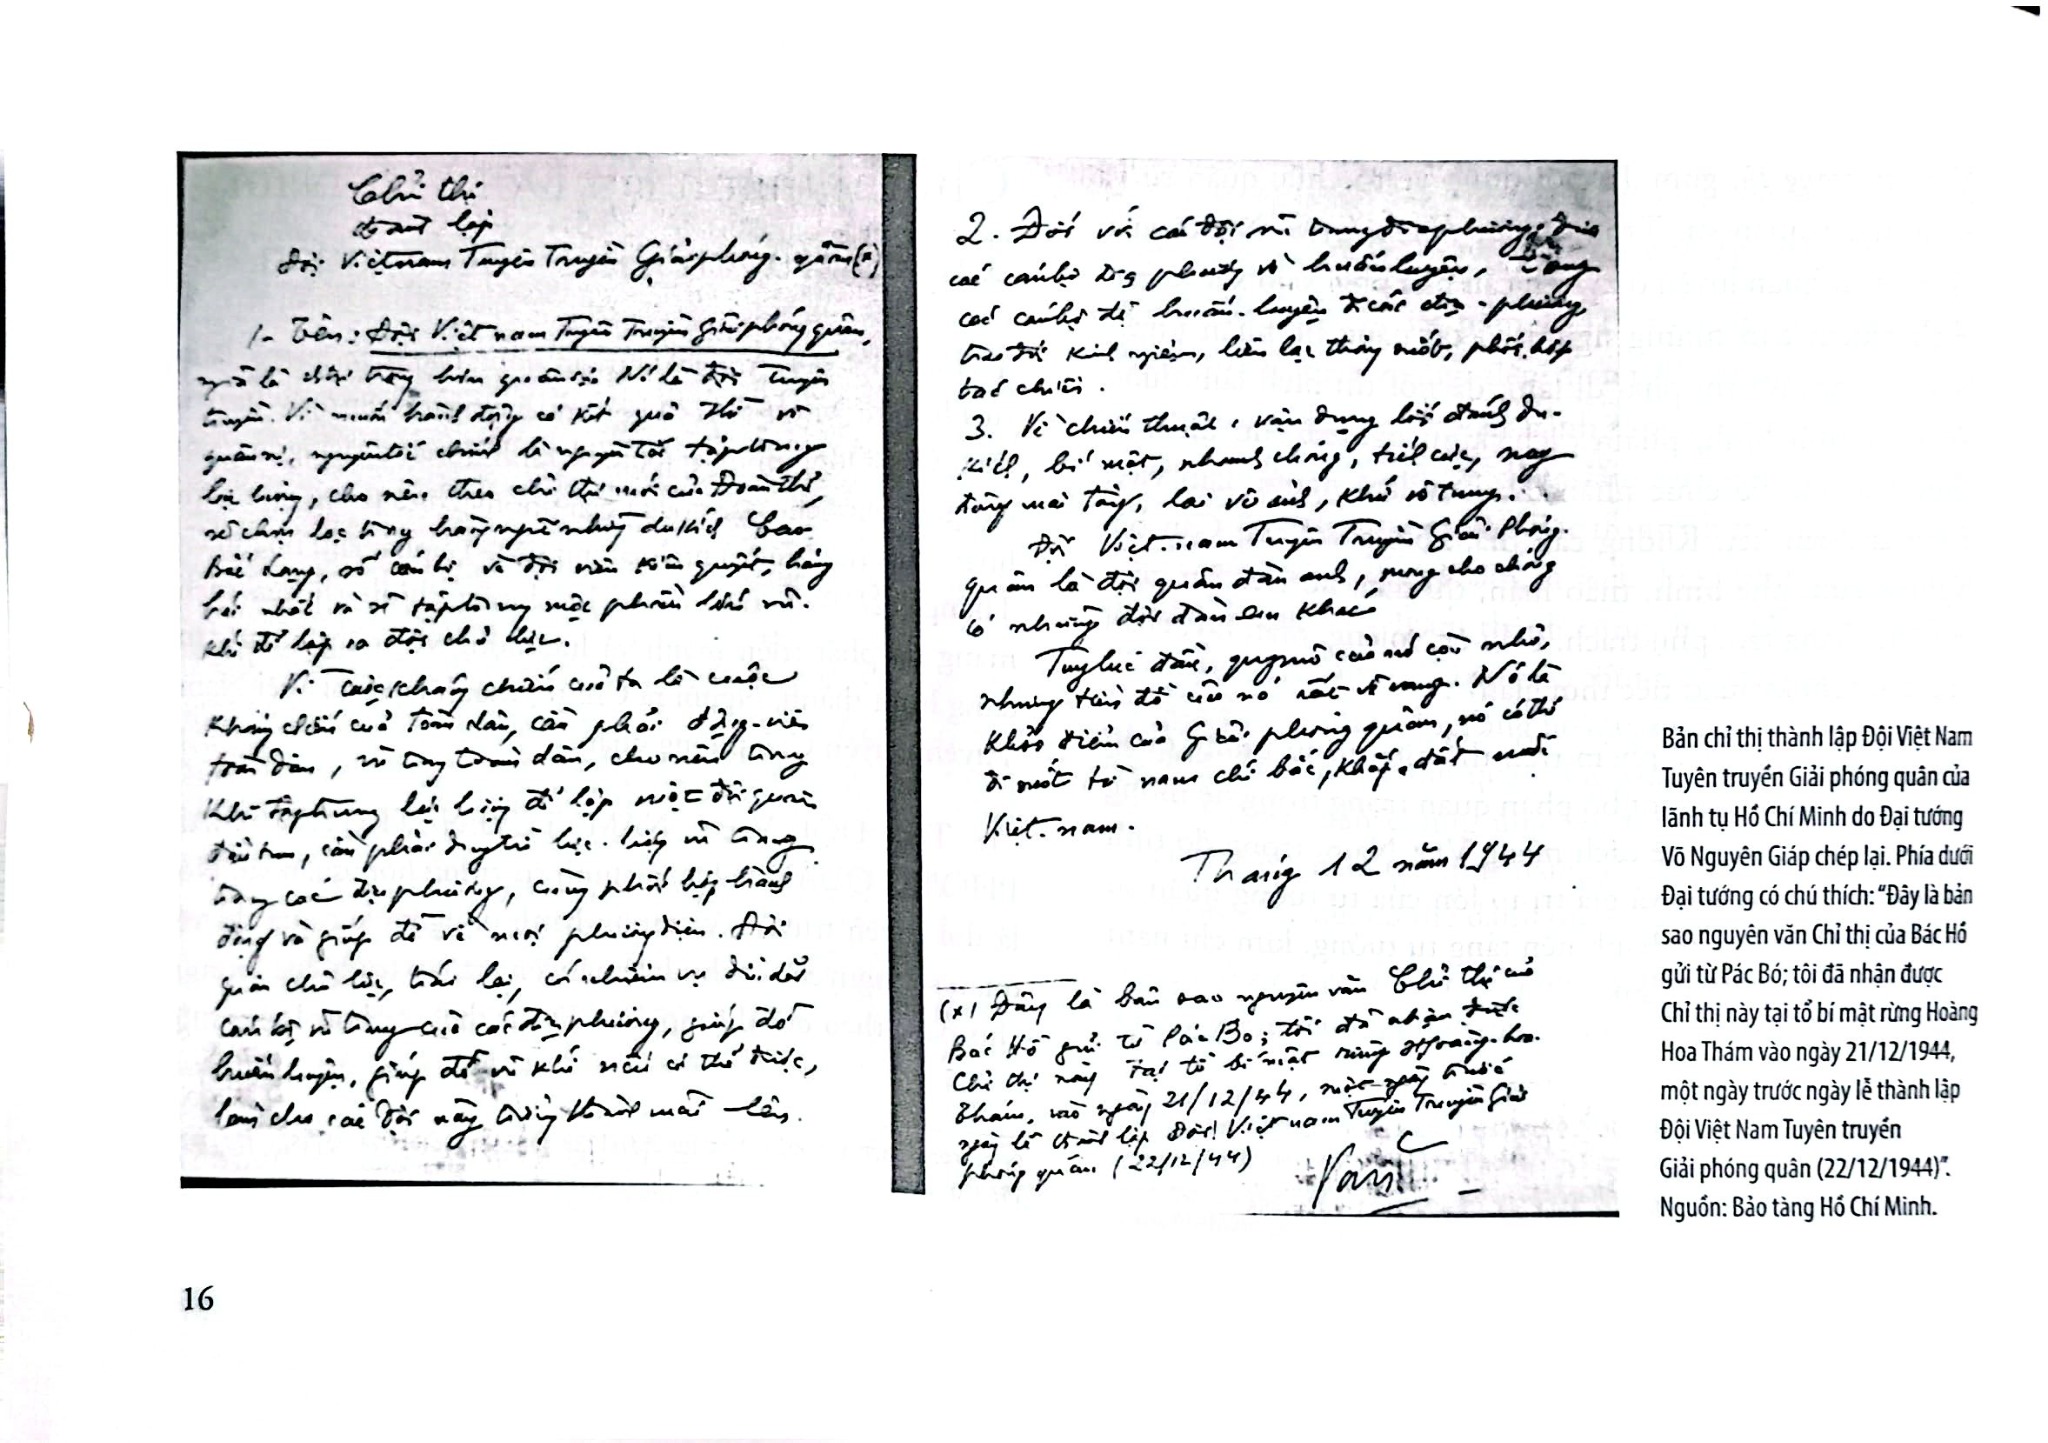 Chỉ thị
thành lập
Đội Việtnam Tuyên Truyền Giảiphóng-quân (x)
1- Tên: Đội Việtnam Tuyên Truyền Giảiphóng quân,
nghĩa là chính trị trọng hơn quânsự. Nó là đội Tuyên
truyền. Vì muốn hành động có kết quả thì về
quânsự, nguyêntắc chính là nguyên tắc tậptrung
lực lượng, cho nên, theo chỉ thị mới của Đoànthể,
sẽ chọn lọc trong hàng ngũ những dukích Cao-
Bắc Lạng, số cánbộ và đội viên kiên quyết, hăng
hái nhất và sẽ tậptrung một phần lớn vũ-
khí để lập ra đội chủ lực.
Vì cuộc kháng chiến của ta là cuộc
kháng chiến của toàn dân, cần phải động-viên
toàn dân, vũ trang toàn dân, cho nên trong
khi tậptrung lực lượng để lập một đội quân
đầu tiên, cần phải duy trì lực-lượng vũ trang
trong các địa phương, cùng phối hợp hành
động và giúp đỡ về mọi phươngdiện. Đội
quân chủ lực, trái lại, có nhiệm vụ dìu dắt
cán bộ vũ trang của các địa phương, giúp đỡ
huấn luyện, giúp đỡ vũ khí nếu có thể được,
làm cho các đội này trưởng thành mãi lên.
2. Đối với các đội vũ trang địa phương: đưa
các cánbộ địa phương về huấn luyện, tung
các cánbộ đã huấn-luyện đi các địa-phương,
trao đổi kinh nghiệm, liên lạc thông suốt, phối hợp
tác chiến.
3. Về chiến thuật: vận dụng lối đánh du-
kích, bí mật, nhanh chóng, tích cực, nay
đông mai tây, lai vô ảnh, khứ vô tung.
Đội Việt-nam Tuyên Truyền Giải Phóng-
quân là đội quân đàn anh, mong cho chóng
có những đội đàn em khác
Tuy lúc đầu, quy mô của nó còn nhỏ,
nhưng tiền đồ của nó rất vẻ vang. Nó là
khởi điểm của Giải phóng quân, nó có thể
đi suốt từ nam chí bắc, khắp đất nước
Việt-nam.
Tháng 12 năm 1944
(x) Đây là bản sao nguyên văn Chỉ thị của
Bác Hồ gửi từ Pác Bó; tôi đã nhận được
Chỉ thị này tại tổ bí mật rừng Hoàng-hoa-
Thám, vào ngày 21/12/44, một ngày trước
ngày lễ thành lập Đội Việt nam Tuyên Truyền Giải
phóng quân (22/12/44)
Văn
Bản chỉ thị thành lập Đội Việt Nam
Tuyên truyền Giải phóng quân của
lãnh tụ Hồ Chí Minh do Đại tướng
Võ Nguyên Giáp chép lại. Phía dưới
Đại tướng có chú thích: “Đây là bản
sao nguyên văn Chỉ thị của Bác Hồ
gửi từ Pác Bó; tôi đã nhận được
Chỉ thị này tại tổ bí mật rừng Hoàng
Hoa Thám vào ngày 21/12/1944,
một ngày trước ngày lễ thành lập
Đội Việt Nam Tuyên truyền
Giải phóng quân (22/12/1944)”.
Nguồn: Bảo tàng Hồ Chí Minh.
16